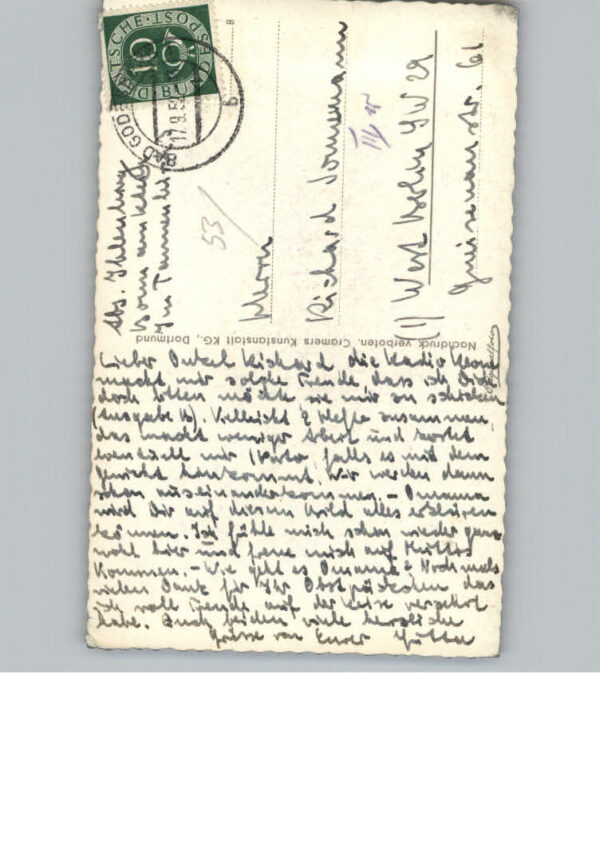 DEUTSCHE BUNDESPOST
10
BAD GODESBERG
17.9.5
b
8
Abs. Ihlenburg
Bonn
Im Tannenbusch
53/
Herrn
Richard Sonnemann
(1) West Berlin SW 29
Gneisenaustr. 61
Nachdruck verboten, Cramers Kunstanstalt KG., Dortmund
Lieber Onkel Richard die Radio
macht mir solche Freude, dass ich Dich
doch bitten möchte sie mir zu schicken
(Ausgabe B). Vielleicht 2 Hefte zusammen,
das macht weniger Arbeit und kostet
eventuell nur 1 Porto falls es mit dem
Gewicht hinkommt. Wir werden dann
schon auseinanderkommen. - Omama
wird Dir auf diesem Bild alles erklären
können. Ich fühle mich schon wieder ganz
wohl hier und freue mich auf Muttis
Kommen. - Wie geht es Omama? Nochmals
vielen Dank für Ihr Obstpäckchen das
ich voll Freude auf der Reise verzehrt
habe. Euch beiden viele herzliche
Grüsse von Eurer Jutta